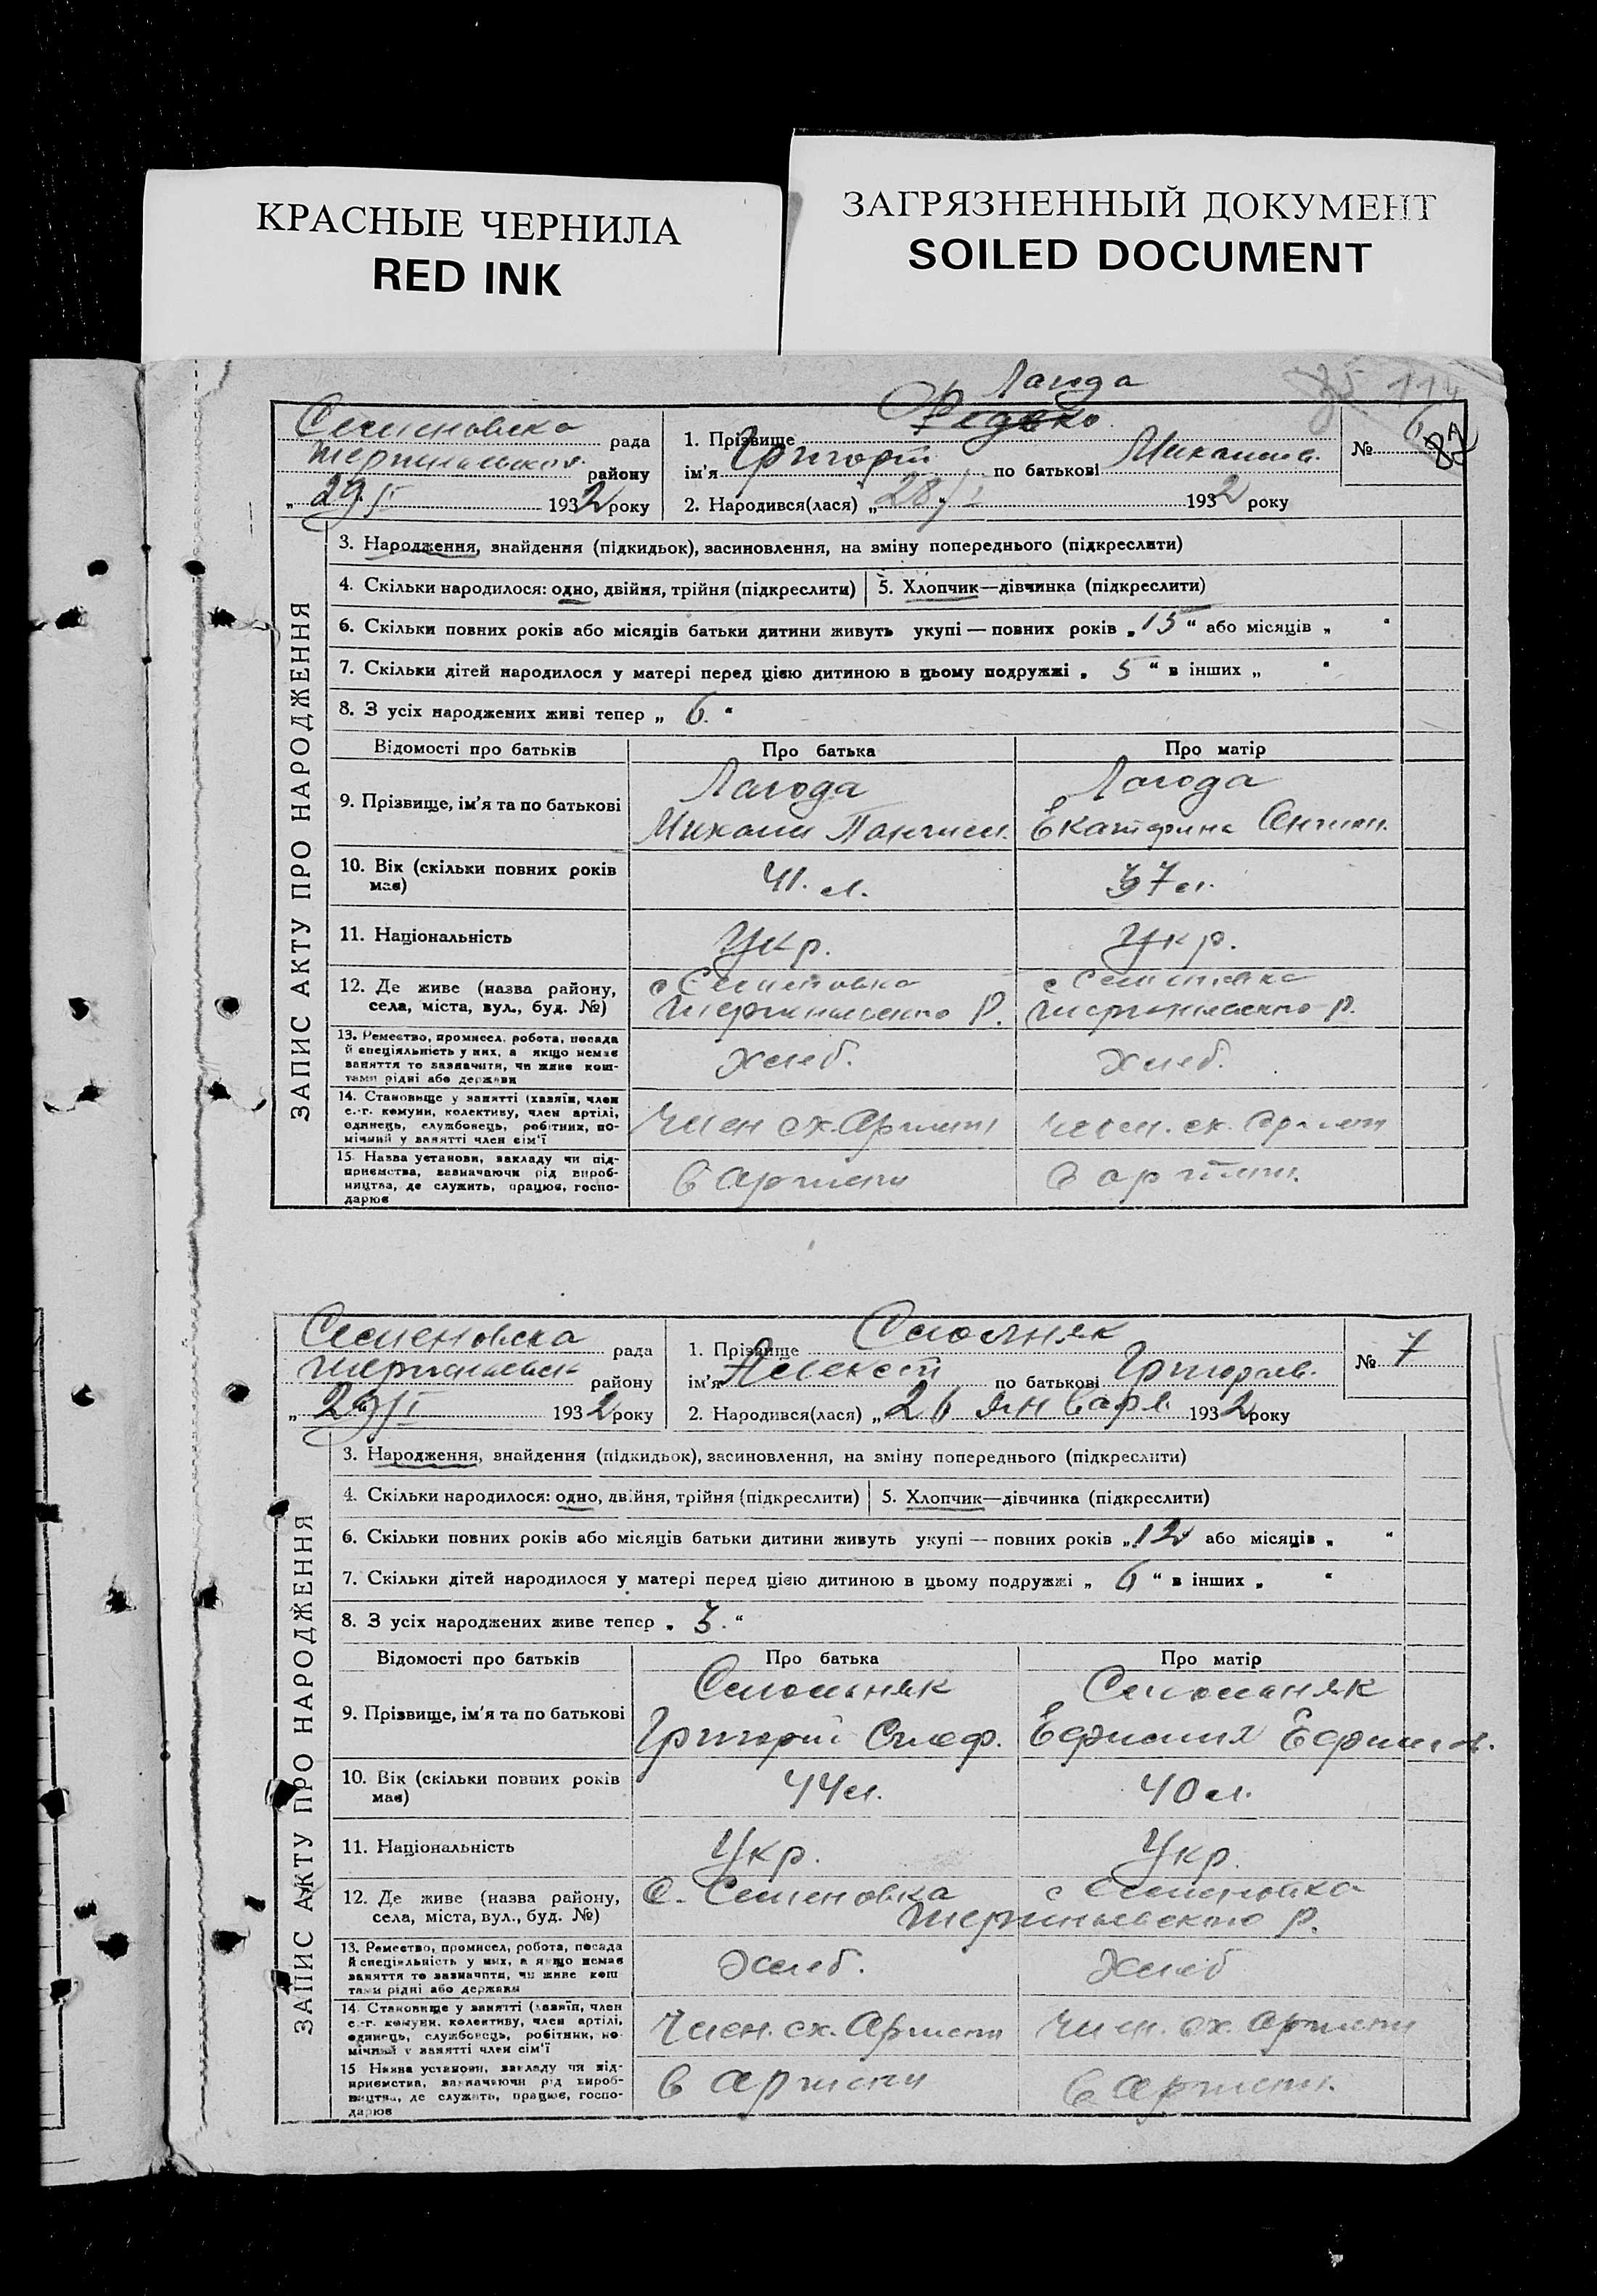 КРАСНЫЕ ЧЕРНИЛА
RED INK
ЗАГРЯЗНЕННЫЙ ДОКУМЕНТ
SOILED DOCUMENT
114
Семеновска рада
району
„ 29/I 1932 року
1. Прізвище
ім'я Григорій по батькові Михайлов.
2. Народився(лася) „ 28/I 1932 року
№ 6
ЗАПИС АКТУ ПРО НАРОДЖЕННЯ
3. Народження, знайдення (підкидьок), засиновлення, на зміну попереднього (підкреслити)
4. Скільки народилося: одно, двійня, трійня (підкреслити)
5. Хлопчик—дівчинка (підкреслити)
6. Скільки повних років або місяців батьки дитини живуть укупі — повних років „ 15 “ або місяців „ “
7. Скільки дітей народилося у матері перед цією дитиною в цьому подружжі „ 5 “ в інших „ “
8. З усіх народжених живі тепер „ 6. “
Відомості про батьків
Про батька
Про матір
9. Прізвище, ім'я та по батькові
Лагода
Лагода
Екатерина
10. Вік (скільки повних років має)
41. л.
37 л.
11. Національність
Укр.
Укр.
12. Де живе (назва району,
села, міста, вул., буд. №)
с Семеновка
с Семеновка
13. Ремество, промисел, робота, посада
й спеціяльність у них, а якщо немає
заняття то зазначити, чи живе кош-
тами рідні або держави
хлеб.
хлеб.
14. Становище у занятті (хазяїн, член
с.-г. комуни, колективу, член артілі,
одинець, службовець, робітник, по-
мічний у занятті член сім'ї
член сх. Артели
член. сх. артели
15. Назва установи, закладу чи під-
приємства, зазначаючи рід вироб-
ництва, де служить, працює, госпо-
дарює
в артели
в артели.
Семеновска рада
району
„ 29/I 1932 року
1. Прізвище Смоляняк
ім'я Алексей по батькові Григорьев.
2. Народився(лася) „ 26 Января 1932 року
№ 7
ЗАПИС АКТУ ПРО НАРОДЖЕННЯ
3. Народження, знайдення (підкидьок), засиновлення, на зміну попереднього (підкреслити)
4. Скільки народилося: одно, двійня, трійня (підкреслити)
5. Хлопчик—дівчинка (підкреслити)
6. Скільки повних років або місяців батьки дитини живуть укупі — повних років „ 12 або місяців „ “
7. Скільки дітей народилося у матері перед цією дитиною в цьому подружжі „ 6 “ в інших „ “
8. З усіх народжених живе тепер „ 3. “
Відомості про батьків
Про батька
Про матір
9. Прізвище, ім'я та по батькові
Григорій Стеф.
10. Вік (скільки повних років має)
44 л.
40 л.
11. Національність
Укр.
Укр.
12. Де живе (назва району,
села, міста, вул., буд. №)
С. Семеновка
с Семеновка
13. Ремество, промисел, робота, посада
й спеціяльність у них, а якщо немає
заняття то зазначити, чи живе кош
тами рідні або держави
Хлеб.
Хлеб
14. Становище у занятті (хазяїн, член
с.-г. комуни, колективу, член артілі,
одинець, службовець, робітник, по-
мічний у занятті член сім'ї
Член. сх. Артели
Член. сх. артели
15 Назва установи, закладу чи під-
приємства, зазначаючи рід вироб-
ництва, де служить, працює, госпо-
дарює
в артели
в артели.